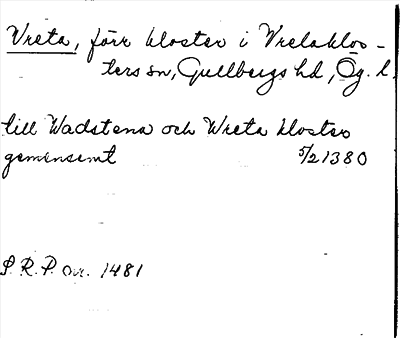 Vreta, förr kloster i Vretaklos-
ters sn, Gullbergs hd, Ög. l.
till Wadstena och Wreta kloster
gemensamt 5/2 1380
S. R. P. nr. 1481